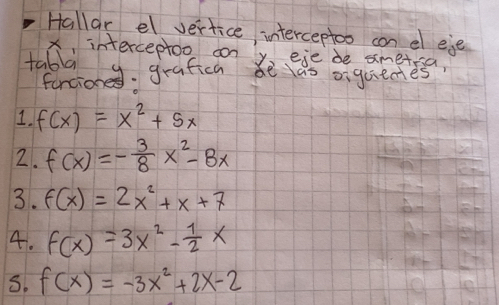 ▸ Hallar el vértice, interceptos con el eje
x, interceptos con y, eje de simetria,
tabla y grafica de las siguientes
funciones:
1. f(x) = x² + 5x
2. f(x) = -3/8 x² - 8x
3. f(x) = 2x² + x + 7
4. f(x) = 3x² - 1/2 x
5. f(x) = -3x² + 2x - 2